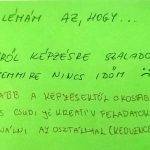 LÉMÁM AZ, HOGY...
RÓL KÉPZÉSRE SZALADO
EMMIRE NINCS IDŐM
ABB A KÉPZÉSEKTŐL OKOSABB
CSUDI JÓ KREATÍV FELADATOK
NÁLNI AZ OSZTÁLLYAL (KEDVENCE